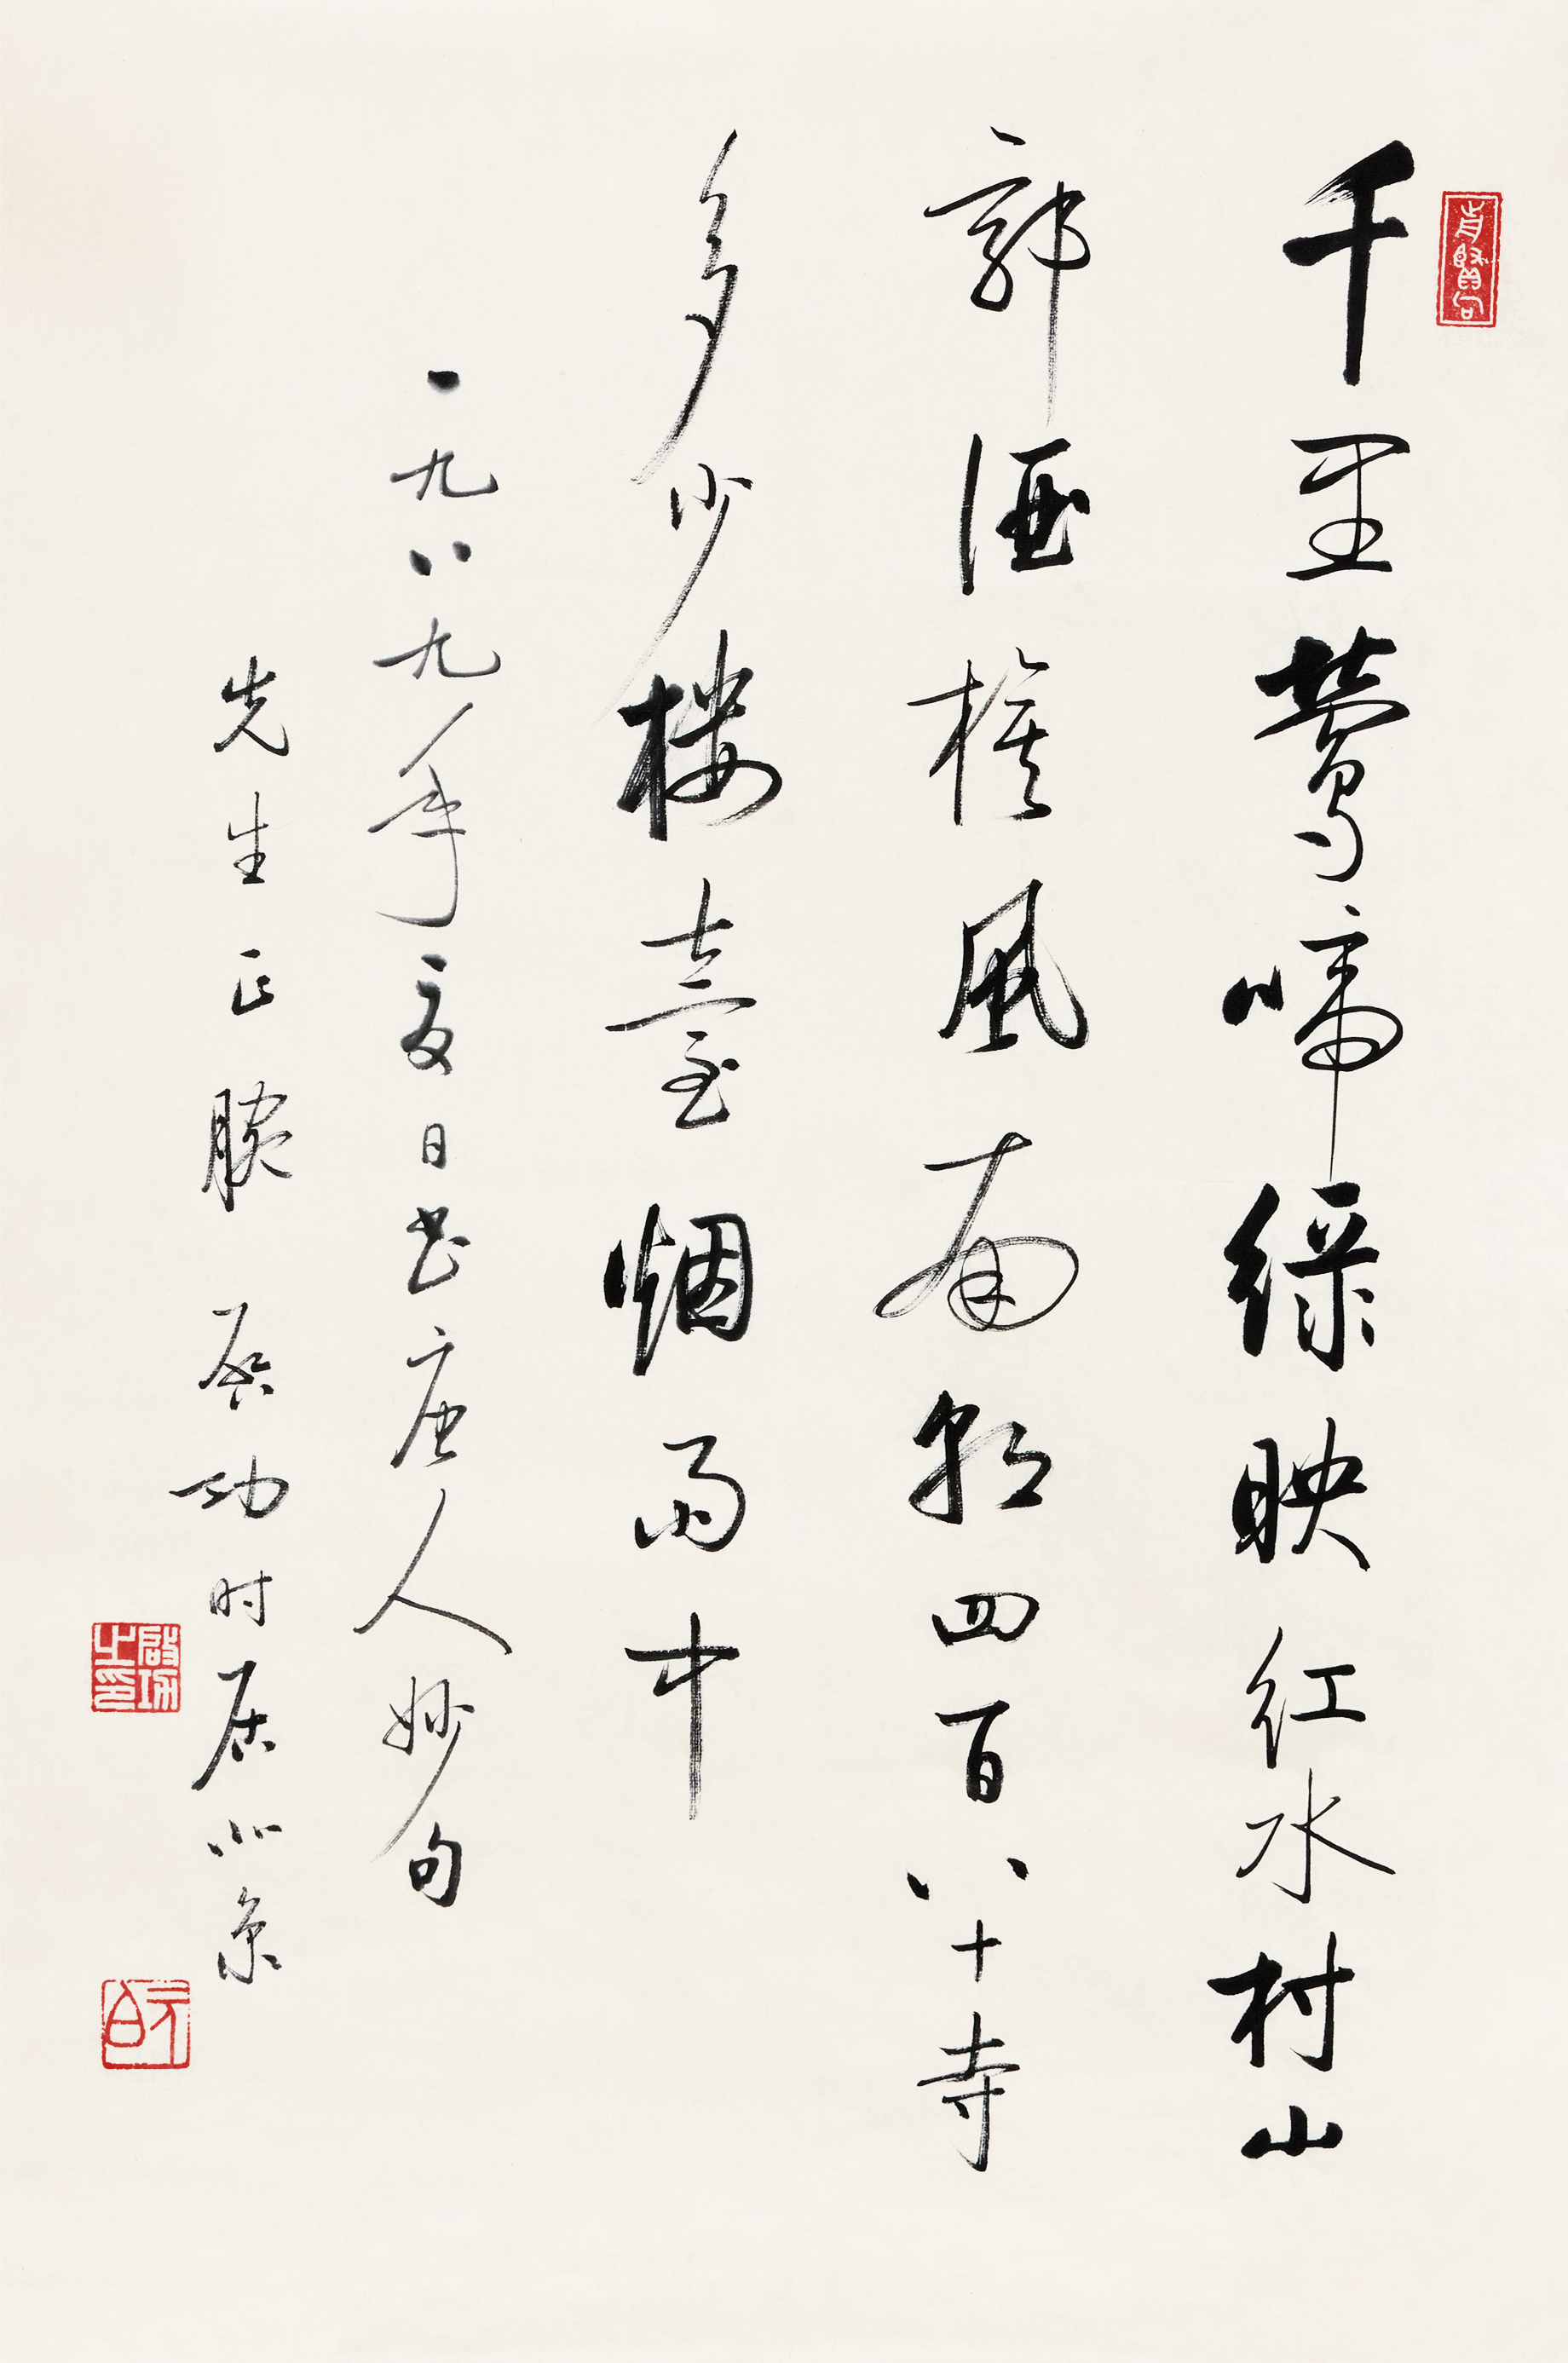 千里鶯啼綠映紅水村山
郭酒旗風南朝四百八十寺
多少楼臺烟雨中
一九八九年夏日书唐人妙句
先生正腕 启功时居北京
啟功之印
元白